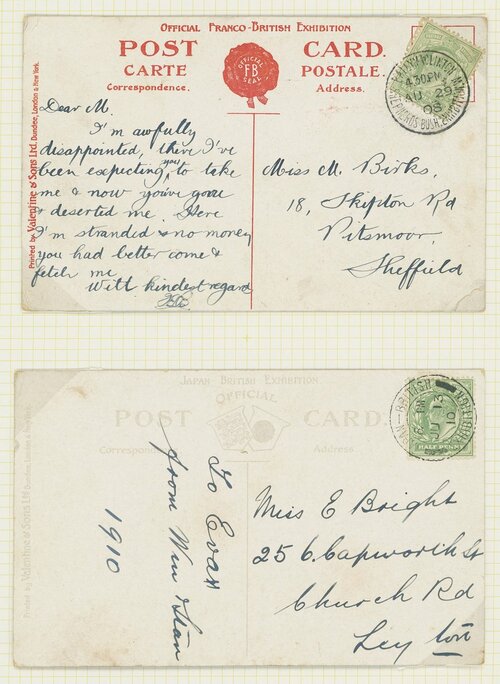 OFFICIAL FRANCO-BRITISH EXHIBITION
POST CARD.
CARTE POSTALE.
Correspondence. Address.
OFFICIAL
FB
SEAL
4.30PM
AU 29
08
SHEPHERDS BUSH
Printed by Valentine & Sons Ltd. Dundee, London & New York.
Dear M.
I'm awfully
disappointed, there I've
been expecting you to take
me & now you've gone
& deserted me. Here
I'm stranded & no money
you had better come &
fetch me
With kindest regard
Miss M. Birks,
18, Skipton Rd
Pitsmoor,
Sheffield
JAPAN BRITISH EXHIBITION
OFFICIAL
POST CARD
Correspondence Address
BRITISH
13
10
HALF PENNY
Printed by Valentine & Sons Ltd Dundee, London &
To Eva
from Win & Stan
1910
Miss E Bright
25 C. Capworth St
Church Rd
Leyton